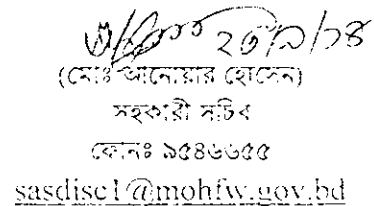 ২৩/৯/১৪
(মোঃ আনোয়ার হোসেন)
সহকারী সচিব
ফোনঃ ৯৫৪৬৬৫৫
sasdisc1@mohfw.gov.bd